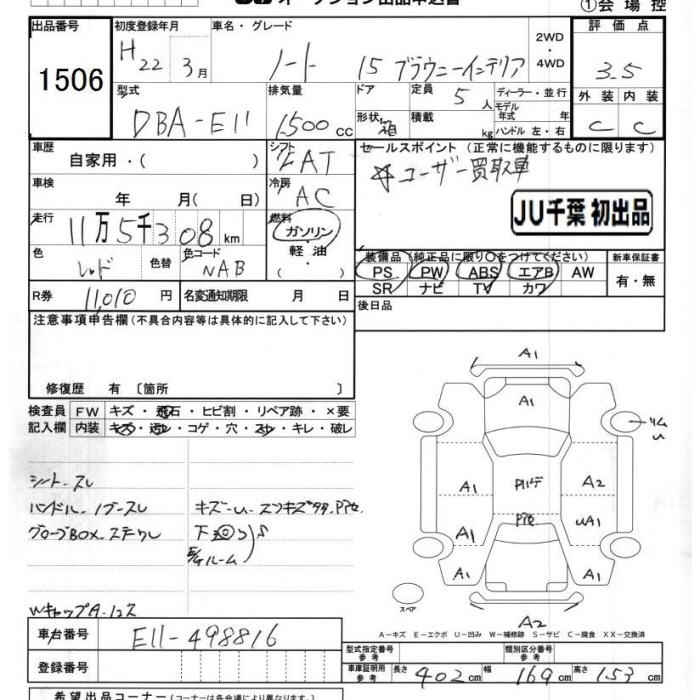 オークション出品申込書 ①会場控
出品番号 初度登録年月 車名・グレード 2WD・4WD 評価点
1506 H22 3月 ノート 15 ブラウニーインテリア 3.5
型式 排気量 ドア 定員 5人 ディーラー・並行 外装 内装
モデル年式 年
DBA-E11 1500cc 形状 箱 積載 kg ハンドル 左・右 C C
車歴 自家用・( ) シフト FAT セールスポイント(正常に機能するものに限ります)
☆ユーザー買取車
車検 年 月( 日) 冷房 AC
JU千葉 初出品
走行 11万5千308km 燃料 ガソリン・軽油・
色 レッド 色替 色コード NAB
装備品(純正品に限り○をつけてください) 新車保証書
PS PW ABS エアB AW 有・無
SR ナビ TV カワ
R券 11,010円 名変通知期限 月 日
後日品
注意事項申告欄(不具合内容等は具体的に記入して下さい)
修復歴 有〔箇所 〕
検査員 FW キズ・飛石・ヒビ割・リペア跡・×要
記入欄 内装 キズ・汚レ・コゲ・穴・スレ・キレ・破レ
シート.スレ
ハンドル.ノブースレ キズーU.スリキズタタ.PPセ
グローブBOX.ステワレ 下廻り
E/Gルーム
Wキャップタ-12ス
A1
A1
リム
U
A1 PHゲ A2
A1 PPセ UA1
A1 A1
スペア
A2
A-キズ E-エクボ U-凹み W-補修跡 S-サビ C-腐食 XX-交換済
車台番号 E11-498816
型式指定番号 参考 類別区分番号 参考
登録番号
車庫証明用 参考 長さ 402cm 幅 169cm 高さ 153cm
希望出品コーナー(コーナーは各会場により異なります)